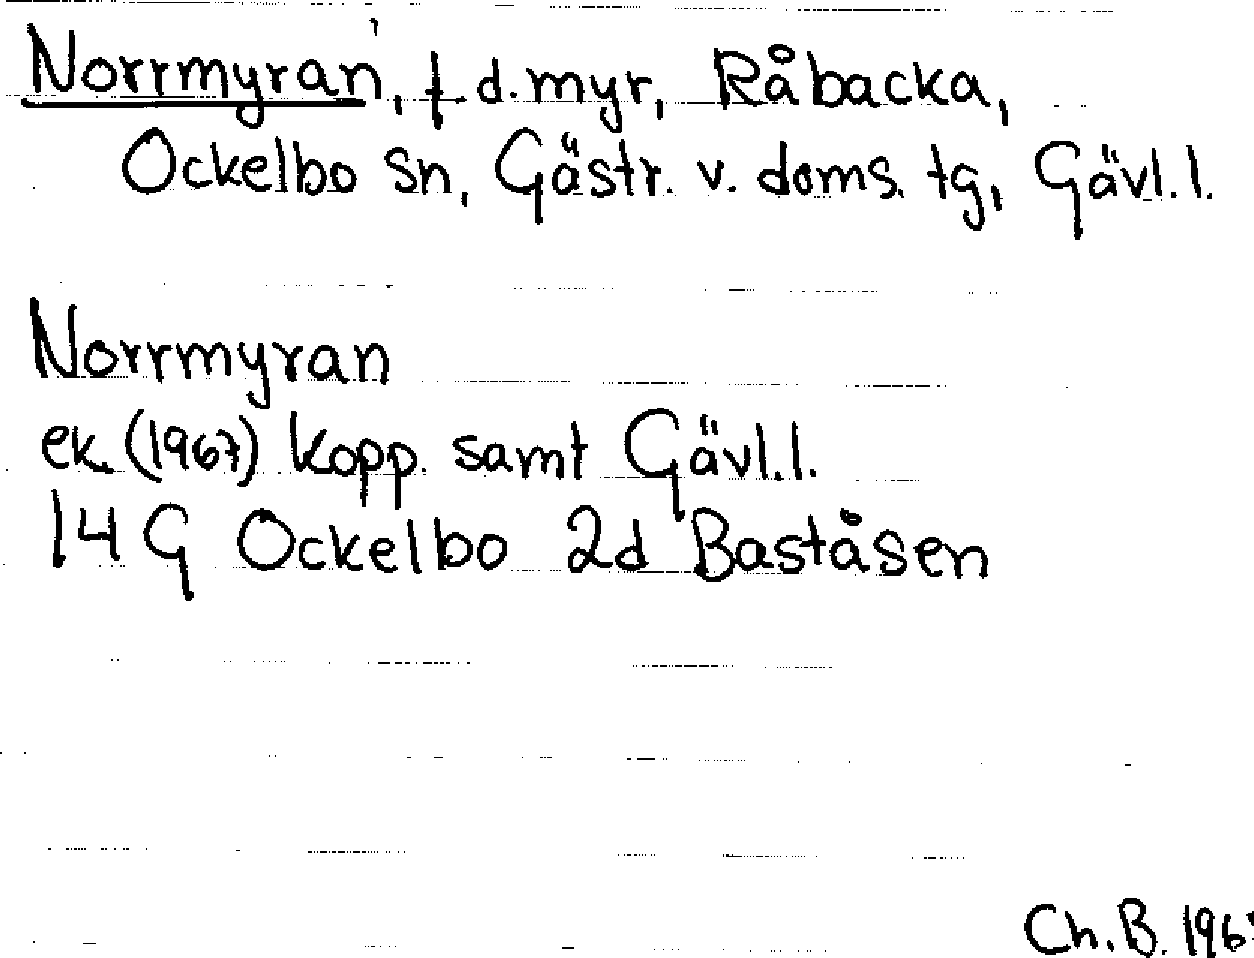 Norrmyran, f.d. myr, Råbacka,
Ockelbo sn, Gästr. v. doms. tg, Gävl.l.
Norrmyran
ek. (1967) Kopp. samt Gävl.l.
14 G Ockelbo 2d Baståsen
Ch.B.